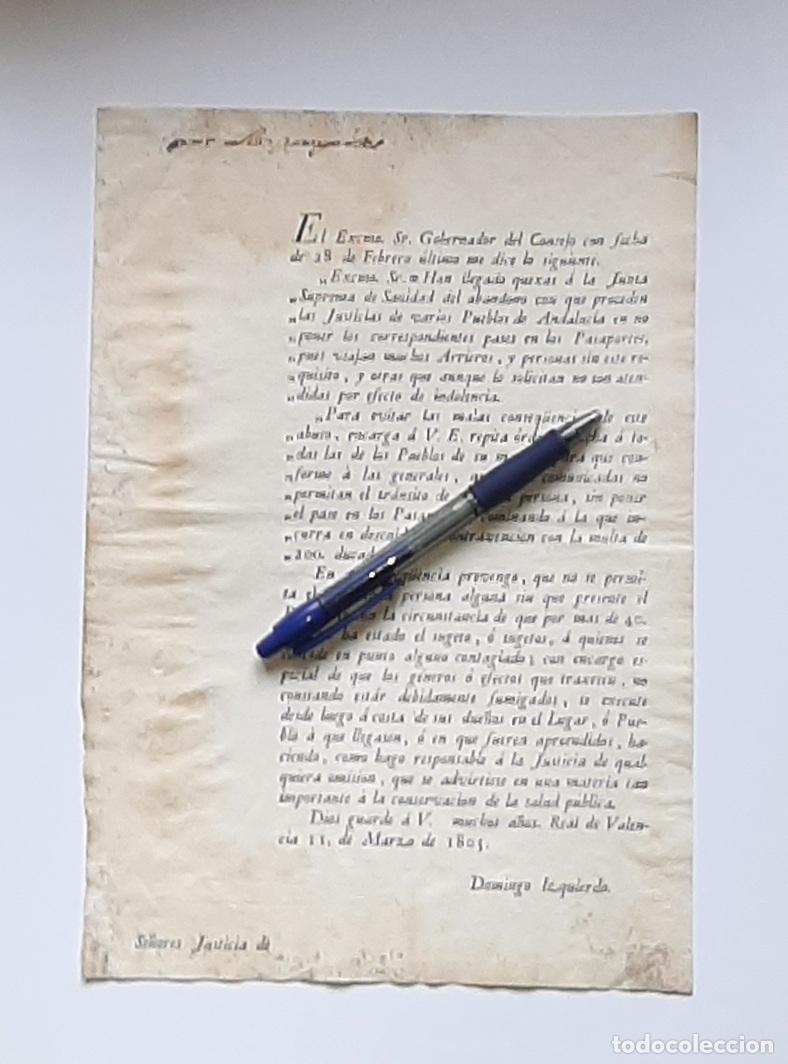 El Excmo. Sr. Gobernador del Consejo con fecha
de 28 de Febrero último me dice lo siguiente.
„Excmo. Sr. = Han llegado quexas á la Junta
„Suprema de Sanidad del abandono con que proceden
„las Justicias de varios Pueblos de Andalucía en no
„poner los correspondientes pases en los Pasaportes,
„pues viajan muchos Arrieros, y personas sin este re-
„quisito, y otras que aunque lo solicitan no son aten-
„didas por efecto de indolencia.
„Para evitar las malas conseqüenci de este
„abuso, encarga á V. E. repita á to-
„das las de los Pueblos de su para que con-
„forme á las generales, comunicadas no
„permitan el tránsito de persona, sin poner
„el pase en los Pasap conminando á la que in-
„curra en descui contravencion con la multa de
„200. ducad
En qüencia prevengo, que no se permi-
ta el persona alguna sin que presente el
la circunstancia de que por mas de 40.
ha estado el sugeto, ó sugetos, á quienes se
en punto alguno contagiado; con encargo es-
pecial de que los géneros ó efectos que traxeren, no
constando estár debidamente fumigados, se execute
desde luego á costa de sus dueños en el Lugar, ó Pue-
blo á que llegasen, ó en que fueren aprendidos, ha-
ciendo, como hago responsable á la Justicia de qual
quiera omision, que se advirtiese en una materia tan
importante á la conservacion de la salud pública.
Dios guarde á V. muchos años. Real de Valen-
cia 11. de Marzo de 1805.
Domingo Izquierdo.
Señores Justicia de
todocoleccion